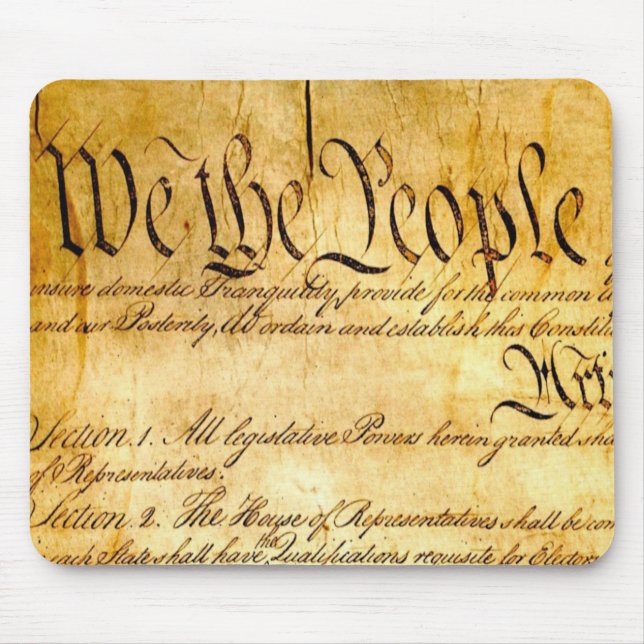 We the People
insure domestic Tranquility, provide for the common
and our Posterity, do ordain and establish this Constitu
Arti
Section. 1. All legislative Powers herein granted sha
of Representatives.
Section. 2. The House of Representatives shall be com
each State shall have the Qualifications requisite for Elector